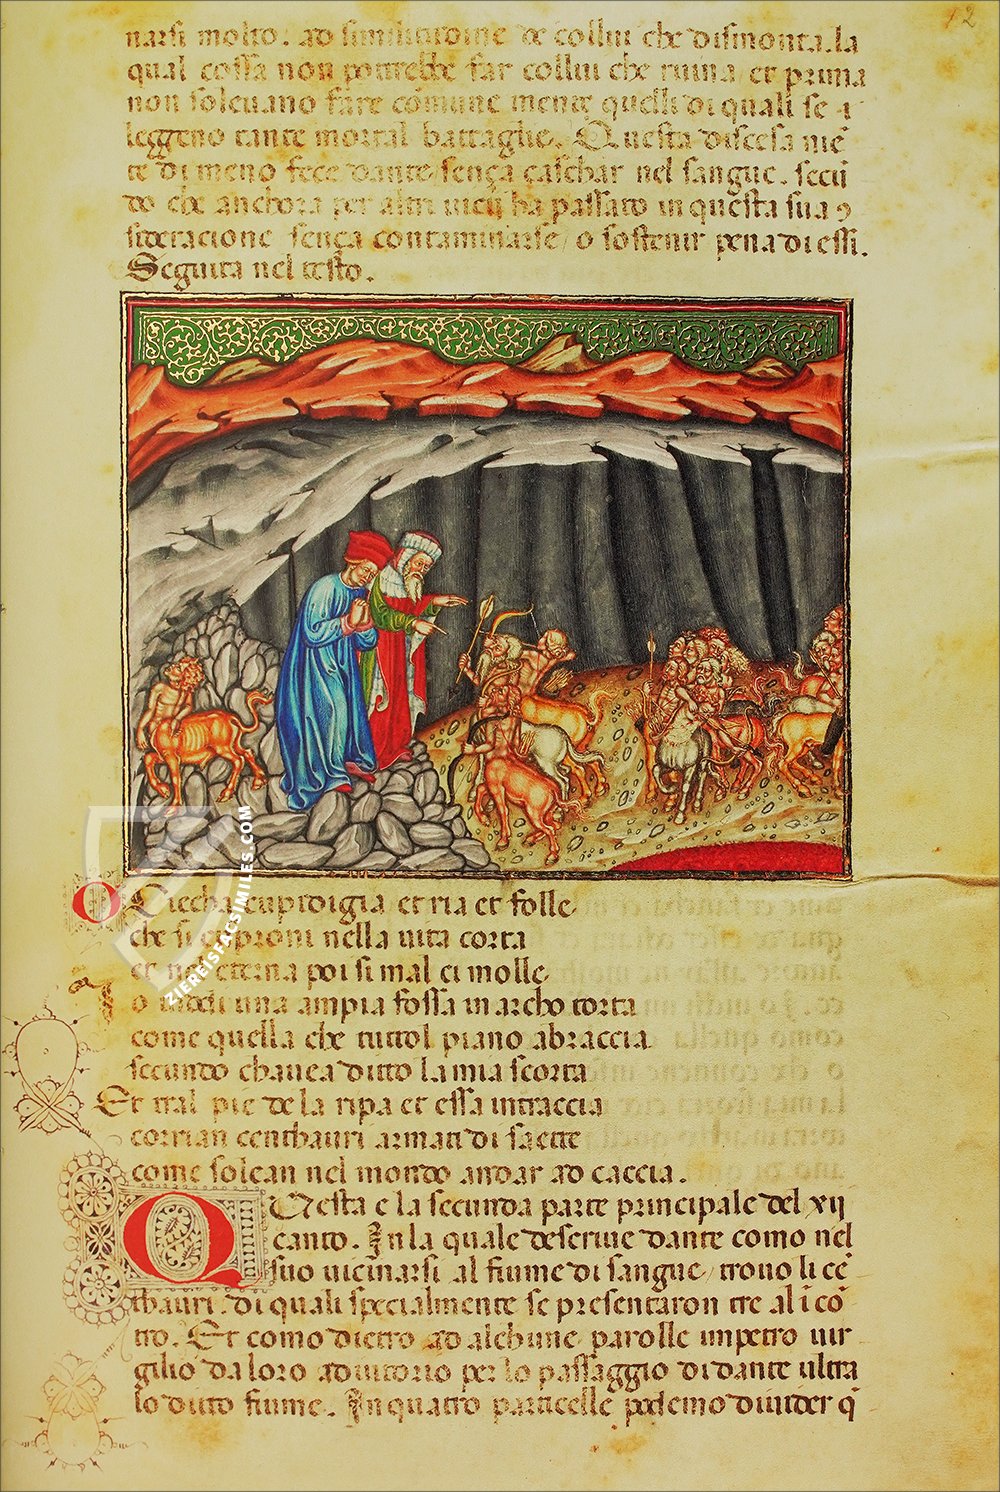 12
narsi molto. ad similitudine de collui che dismonta. la
qual cossa non potrebbe far collui che ruina et prima
non solevano fare comune mente quelli di quali se
leggeno tante mortal battaglie. Questa discesa niē
te di meno fece dante sença caschar nel sangue. secū
do che anchora per altri vicij ha passato in questa sua ɔ
sideracione sença contaminarse / o sostenir pena di essi.
Seguita nel testo.
O Ciecha cuprdigia et ria et folle
che si ci proni nella vita corta
et ne eterna poi si mal ci molle
Io vidi una ampia fossa in archo torta
come quella che tuttol piano abraccia
secundo chavea ditto la mia scorta
Et tral pie de la ripa et essa intraccia
corrian centhauri armati di saette
come solean nel mondo andar ad caccia.
Questa e la secunda parte principale del xij
canto. In la quale descrive dante como nel
suo vicinarsi al fiume di sangue / trovo li cē
thauri. di quali specialmente se presentaron tre al ī cō
tro. Et como dietro ad alchune parolle impetro vir
gilio da loro adiutorio per lo passaggio di dante ultra
lo dito fiume. In quatro particelle podemo divider q̄
ZIEREISFACSIMILES.COM